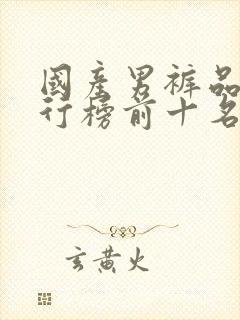 國產男裤品
行榜前十名
玄黄火